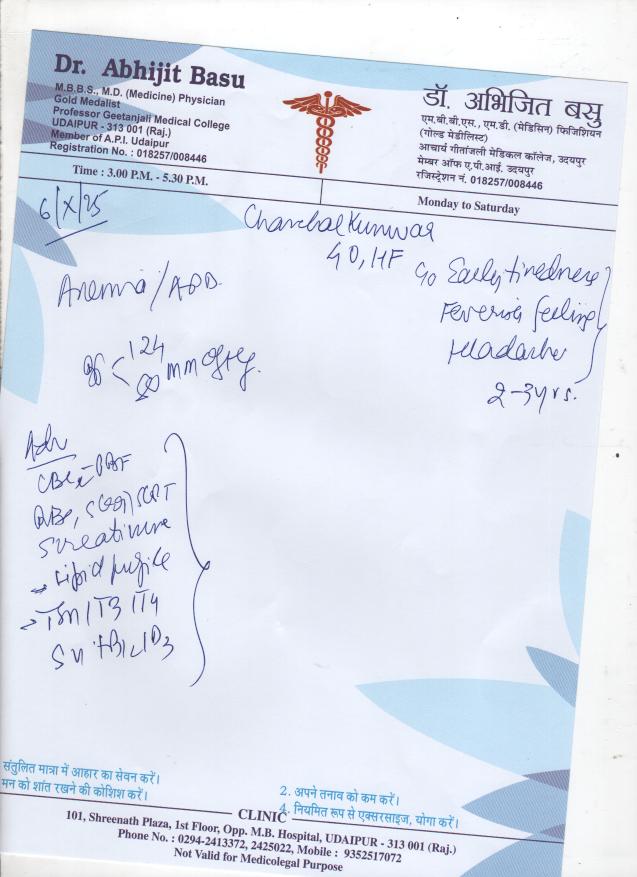 Dr. Abhijit Basu
M.B.B.S., M.D. (Medicine) Physician
Gold Medalist
Professor Geetanjali Medical College
UDAIPUR - 313 001 (Raj.)
Member of A.P.I. Udaipur
Registration No. : 018257/008446
डॉ. अभिजित बसु
एम.बी.बी.एस., एम.डी. (मेडिसिन) फिजिशियन
(गोल्ड मेडीलिस्ट)
आचार्य गीतांजली मेडिकल कॉलेज, उदयपुर
मेम्बर ऑफ ए.पी.आई. उदयपुर
रजिस्ट्रेशन नं. 018257/008446
Time : 3.00 P.M. - 5.30 P.M.
Monday to Saturday
6/X/25
Chanchal Kunwar
40, HF
c/o Early tiredness
Feverish feeling
Headache
2-3yrs.
Anemia/
124
80 mm of Hg.
Adv
CBC PBF
RBS, SGOT/SGPT
S creatinine
→ Lipid profile
→ TSH/T3/T4
S vit B12/D3
संतुलित मात्रा में आहार का सेवन करें।
मन को शांत रखने की कोशिश करें।
2. अपने तनाव को कम करें।
4. नियमित रूप से एक्सरसाइज, योगा करें।
CLINIC
101, Shreenath Plaza, 1st Floor, Opp. M.B. Hospital, UDAIPUR - 313 001 (Raj.)
Phone No. : 0294-2413372, 2425022, Mobile : 9352517072
Not Valid for Medicolegal Purpose